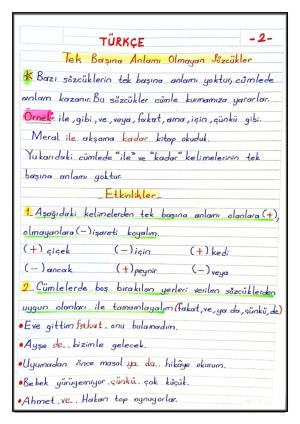 TÜRKÇE
-2-
Tek Başına Anlamı Olmayan Sözcükler
* Bazı sözcüklerin tek başına anlamı yoktur, cümlede
anlam kazanır. Bu sözcükler cümle kurmamıza yararlar.
Örnek: ile, gibi, ve, veya, fakat, ama, için, çünkü gibi.
Meral ile akşama kadar kitap okuduk.
Yukarıdaki cümlede "ile" ve "kadar" kelimelerinin tek
başına anlamı yoktur.
Etkinlikler
1. Aşağıdaki kelimelerden tek başına anlamı olanlara (+),
olmayanlara (-) işareti koyalım.
(+) çiçek (-) için (+) kedi
(-) ancak (+) peynir (-) veya
2. Cümlelerde boş bırakılan yerleri verilen sözcüklerden
uygun olanları ile tamamlayalım (fakat, ve, ya da, çünkü, de)
• Eve gittim fakat onu bulamadım.
• Ayşe de bizimle gelecek.
• Uyumadan önce masal ya da hikâye okurum.
• Bebek yürüyemiyor çünkü çok küçük.
• Ahmet ve Hakan top oynuyorlar.